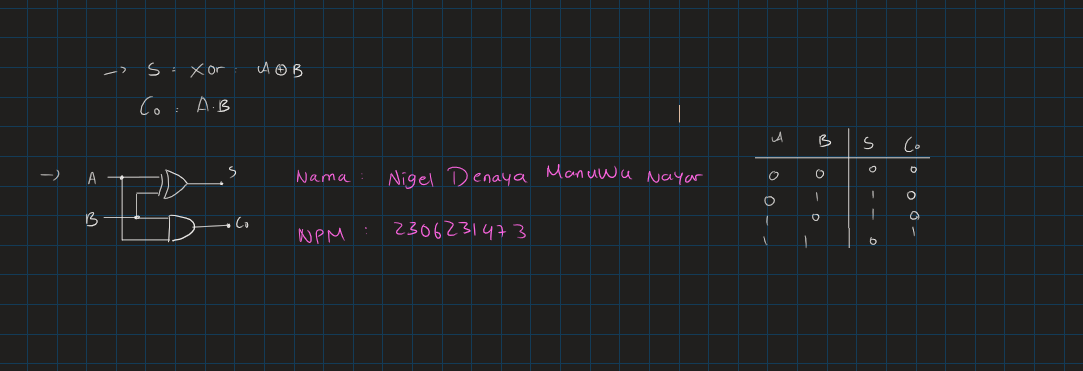 -> S = Xor = A⊕B
Co = A.B
-> A S
B Co
Nama : Nigel Denaya Manuwu Nayar
NPM : 2306231473
A B S Co
0 0 0 0
0 1 1 0
1 0 1 0
1 1 0 1